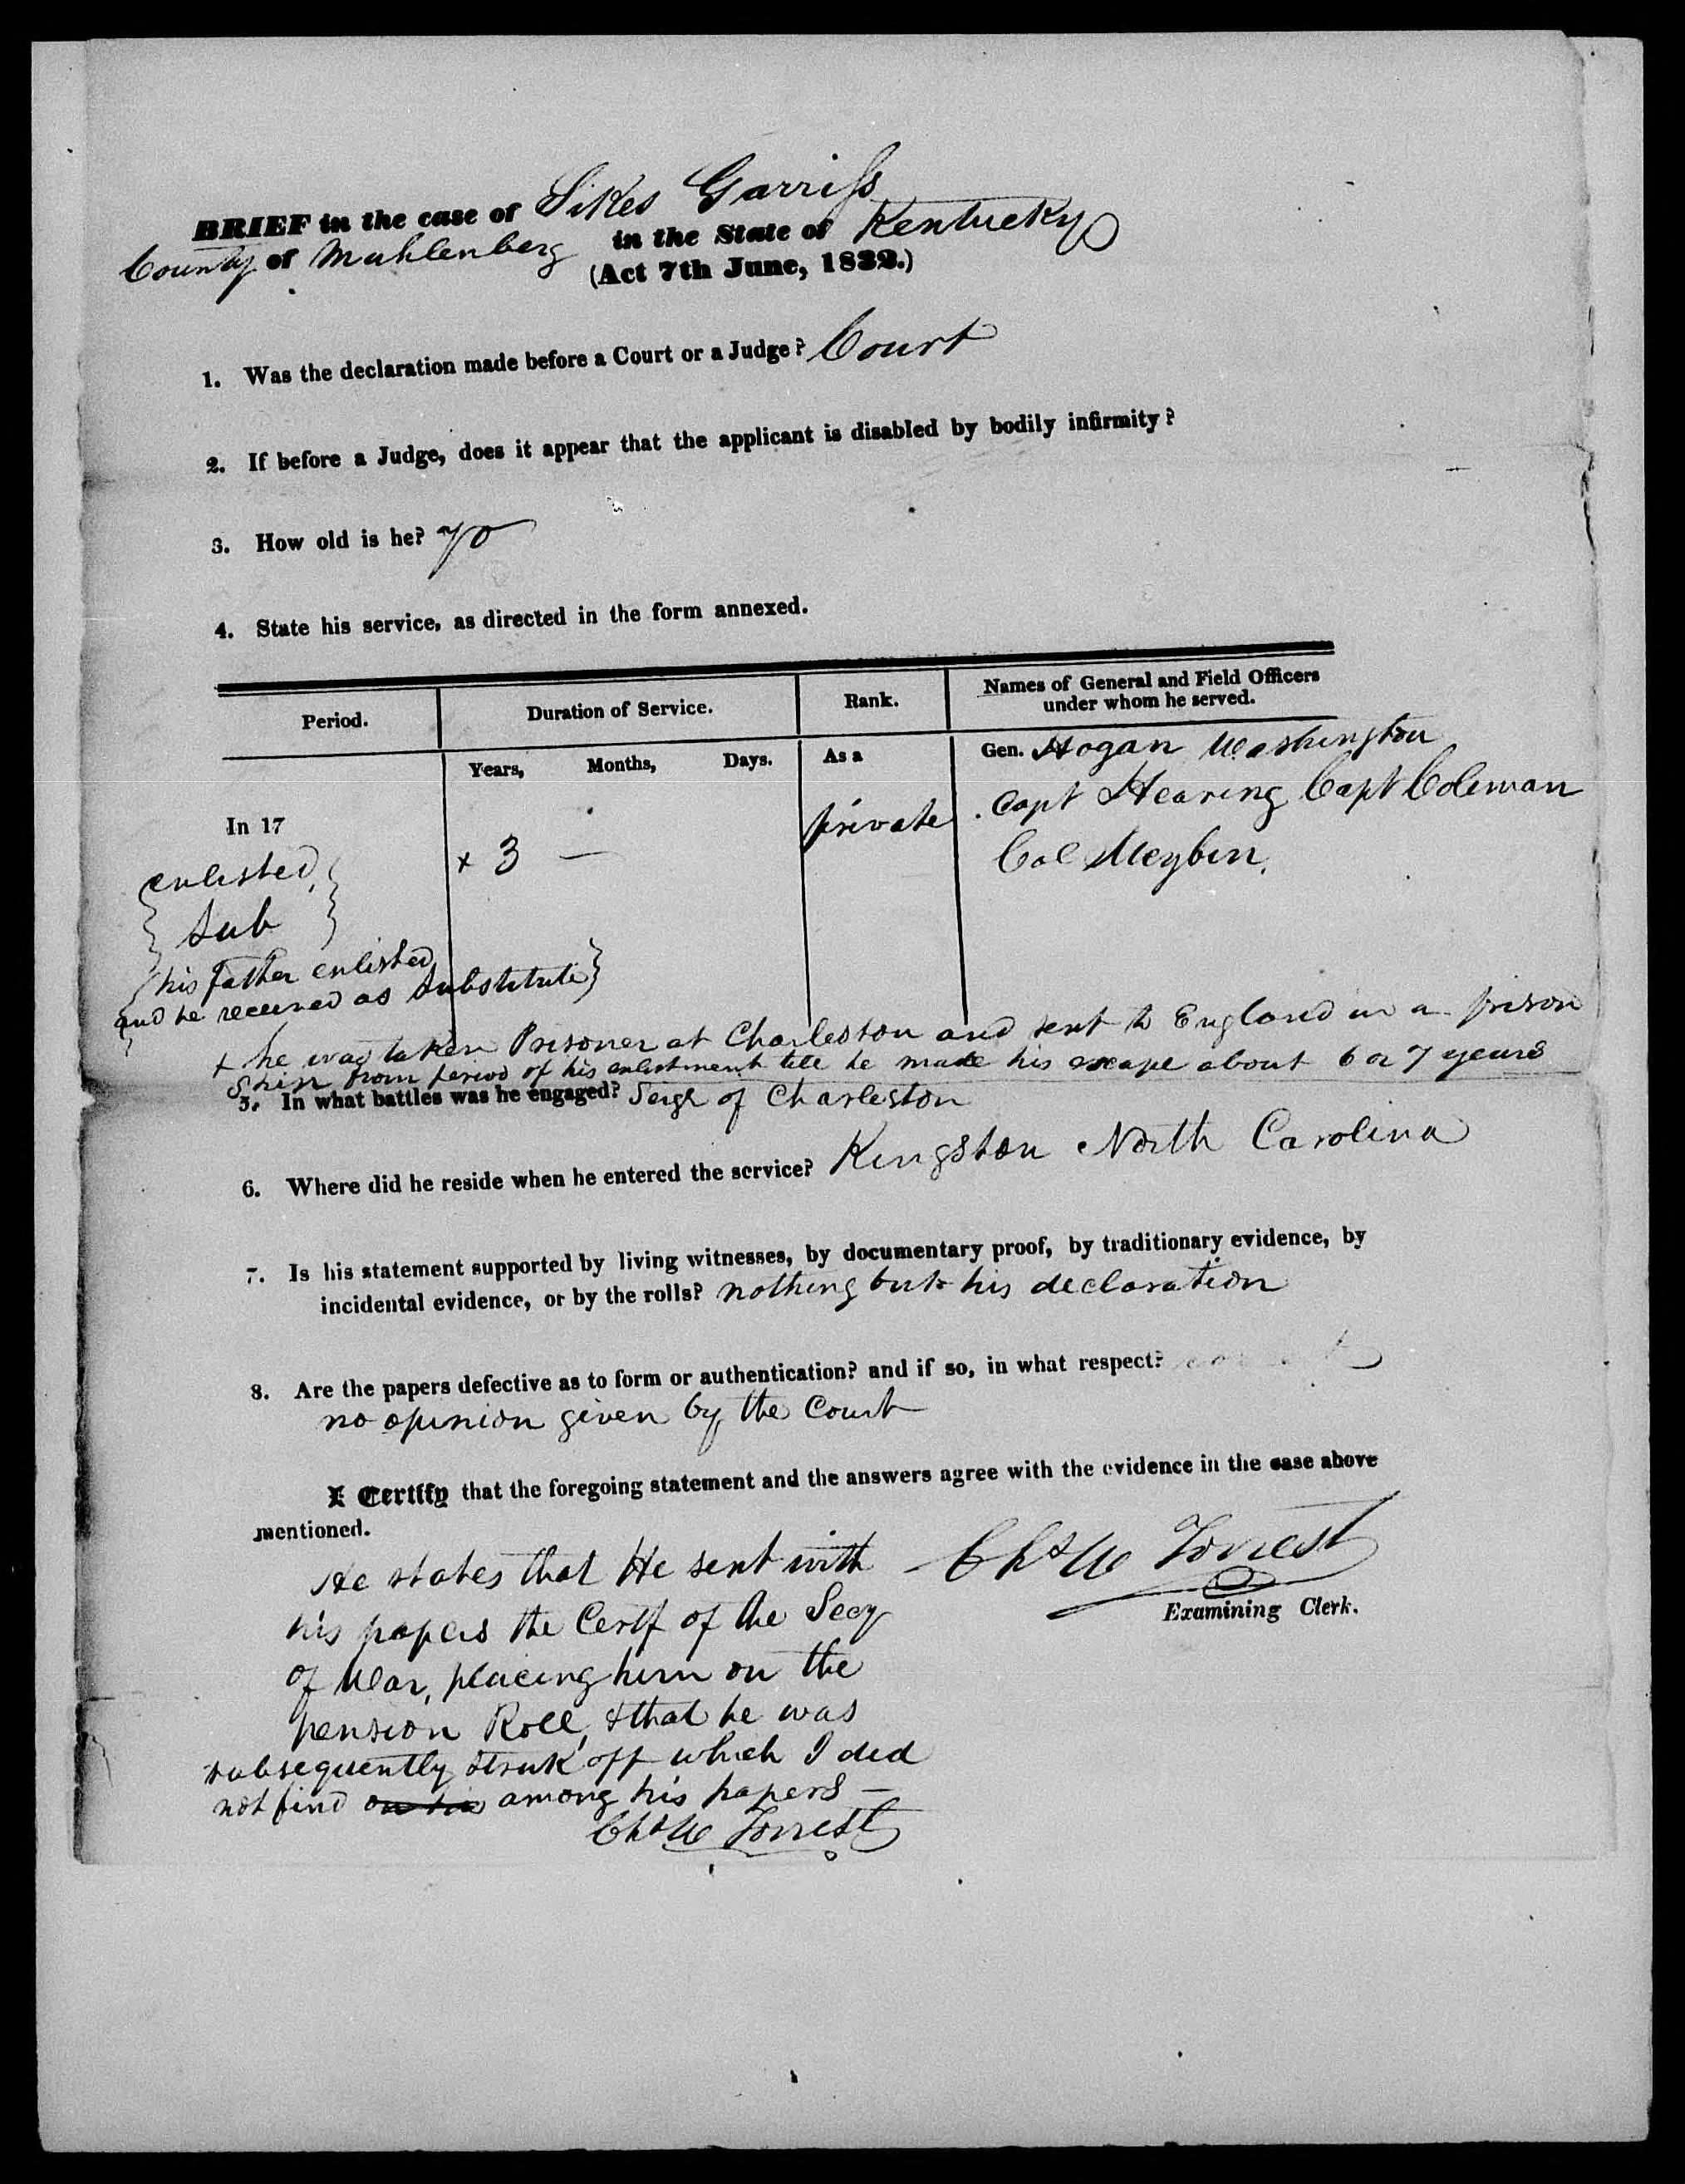 BRIEF in the case of Sikes Garriss
County of Muhlenberg in the State of Kentucky
(Act 7th June, 1832.)
1. Was the declaration made before a Court or a Judge? Court
2. If before a Judge, does it appear that the applicant is disabled by bodily infirmity?
3. How old is he? 70
4. State his service, as directed in the form annexed.
Period. Duration of Service. Rank. Names of General and Field Officers under whom he served.
Years, Months, Days. As a Gen. Hogan Washington
In 17 private Capt Hearing Capt Coleman
enlisted x 3 — Col Meybin.
Sub
his father enlisted
and he received as Substitute
x he was taken Prisoner at Charleston and sent to England in a prison
Ship from period of his enlistment till he made his escape about 6 or 7 years
5. In what battles was he engaged? Seige of Charleston
6. Where did he reside when he entered the service? Kingston North Carolina
7. Is his statement supported by living witnesses, by documentary proof, by traditionary evidence, by
incidental evidence, or by the rolls? nothing but his declaration
8. Are the papers defective as to form or authentication? and if so, in what respect?
no opinion given by the Court
I Certify that the foregoing statement and the answers agree with the evidence in the case above
mentioned.
He states that He sent with
his papers the Certf of the Secy
of War, placing him on the
pension Roll, & that he was
subsequently struk off which I did
not find among his papers —
Chs W Forrest
Chs W Forrest
Examining Clerk.